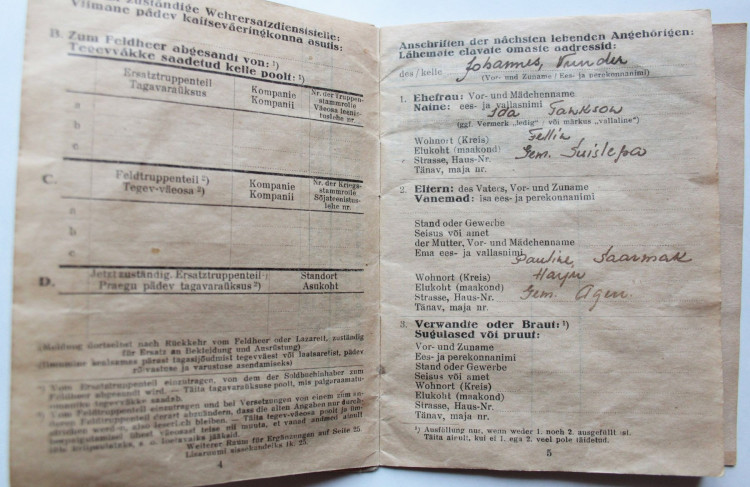 zuständige Wehrersatzdienststelle:
Viimane pädev kaitseväeringkonna asutis:
B. Zum Feldheer abgesandt von: ¹)
Tegevväkke saadetud kelle poolt: ¹)
Ersatztruppenteil
Tagavaraüksus
Kompanie
Kompanii
Nr. der Truppen-
stammrolle
Väeosa
nr.
a
b
c
C. Feldtruppenteil ²)
Tegev-väeosa ²)
Kompanie
Kompanii
Nr. der Kriegs-
stammrolle
Sõjateenistus-
lehe nr.
a
b
c
D. Jetzt zuständig. Ersatztruppenteil
Praegu pädev tagavaraüksus ²)
Standort
Asukoht
(Meldung dortselbst nach Rückkehr vom Feldheer oder Lazarett, zuständig
für Ersatz an Bekleidung und Ausrüstung)
pärast tagasijõudmist tegevväest või laatsaretist, pädev
rõivastuse ja varustuse asendamiseks)
¹) Vom Ersatztruppenteil einzutragen, von dem der Soldbuchinhaber zum
Feldheer abgesandt wird. — Täita tagavaraüksuse poolt, mis
tegevväkke saadab.
²) Vom Feldtruppenteil einzutragen und bei Versetzungen von einem zum
Feldtruppenteil derart abzuändern, dass die alten Angaben nur durch-
leserlich bleiben. — Täita tegev-väeosa poolt ja
ühest väeosast teise nii muuta, et vanad andmed ainult
loetavaks jääksid.
Weiterer Raum für Ergänzungen auf Seite 25
Lisaruumi sissekandeiks lk. 25.
4
Anschriften der nächsten lebenden Angehörigen:
Lähemate elavate omaste aadressid:
des / kelle Johannes,
(Vor- und Zuname / Ees- ja perekonnanimi)
1. Ehefrau: Vor- und Mädchenname
Naine: ees- ja vallasnimi
Ida
(ggf. Vermerk „ledig" / või märkus „vallaline")
Wohnort (Kreis) Fellin
Elukoht (maakond)
Strasse, Haus-Nr. Gem. Suislepa
Tänav, maja nr.
2. Eltern: des Vaters, Vor- und Zuname
Vanemad: isa ees- ja perekonnanimi
Stand oder Gewerbe
Seisus või amet
der Mutter, Vor- und Mädchenname
Ema ees- ja vallasnimi Pauline, Saarmak
Wohnort (Kreis)
Elukoht (maakond)
Strasse, Haus-Nr. Gem.
Tänav, maja nr.
3. Verwandte oder Braut: ¹)
Sugulased või pruut:
Vor- und Zuname
Ees- ja perekonnanimi
Stand oder Gewerbe
Seisus või amet
Wohnort (Kreis)
Elukoht (maakond)
Strasse, Haus-Nr.
Tänav, maja nr.
¹) Ausfüllung nur, wenn weder 1. noch 2. ausgefüllt ist.
Täita ainult, kui ei 1. ega 2. veel pole täidetud.
5